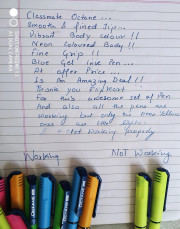 Classmate Octane...
Smooth & fined Tip...
Vibrant Body colour !!
Neon Coloured Body !!
Fine Grip !!
Blue Gel Ink Pen...
At offer Price...
Is An Amazing Deal !!
Thank you Flipkart
For this awesome set of Pen
And also all the pens are
working but only the three Yellow
ones are
Not Working Properly
Working
Not Working
OCTANE